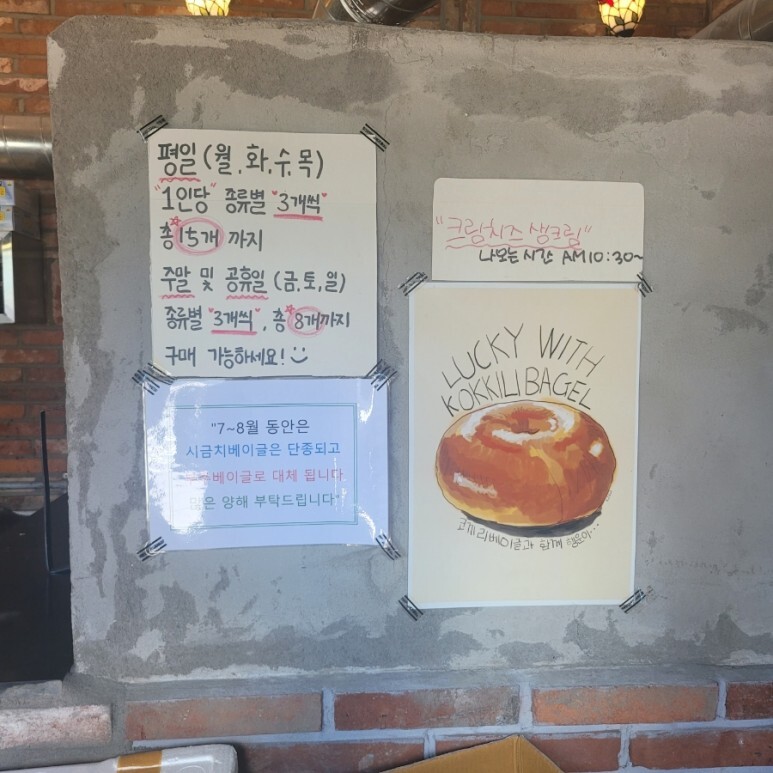 평일 (월,화,수,목)
"1인당" 종류별 "3개씩"
총 15개 까지
주말 및 공휴일 (금,토,일)
종류별 "3개씩", 총 8개까지
구매 가능하세요!
"7~8월 동안은
시금치베이글은 단종되고
베이글로 대체 됩니다
많은 양해 부탁드립니다"
"크랑치즈 생크림"
나오는 시간 AM 10:30~
LUCKY WITH
KOKKILI BAGEL
코끼리베이글과 함께 행운이...